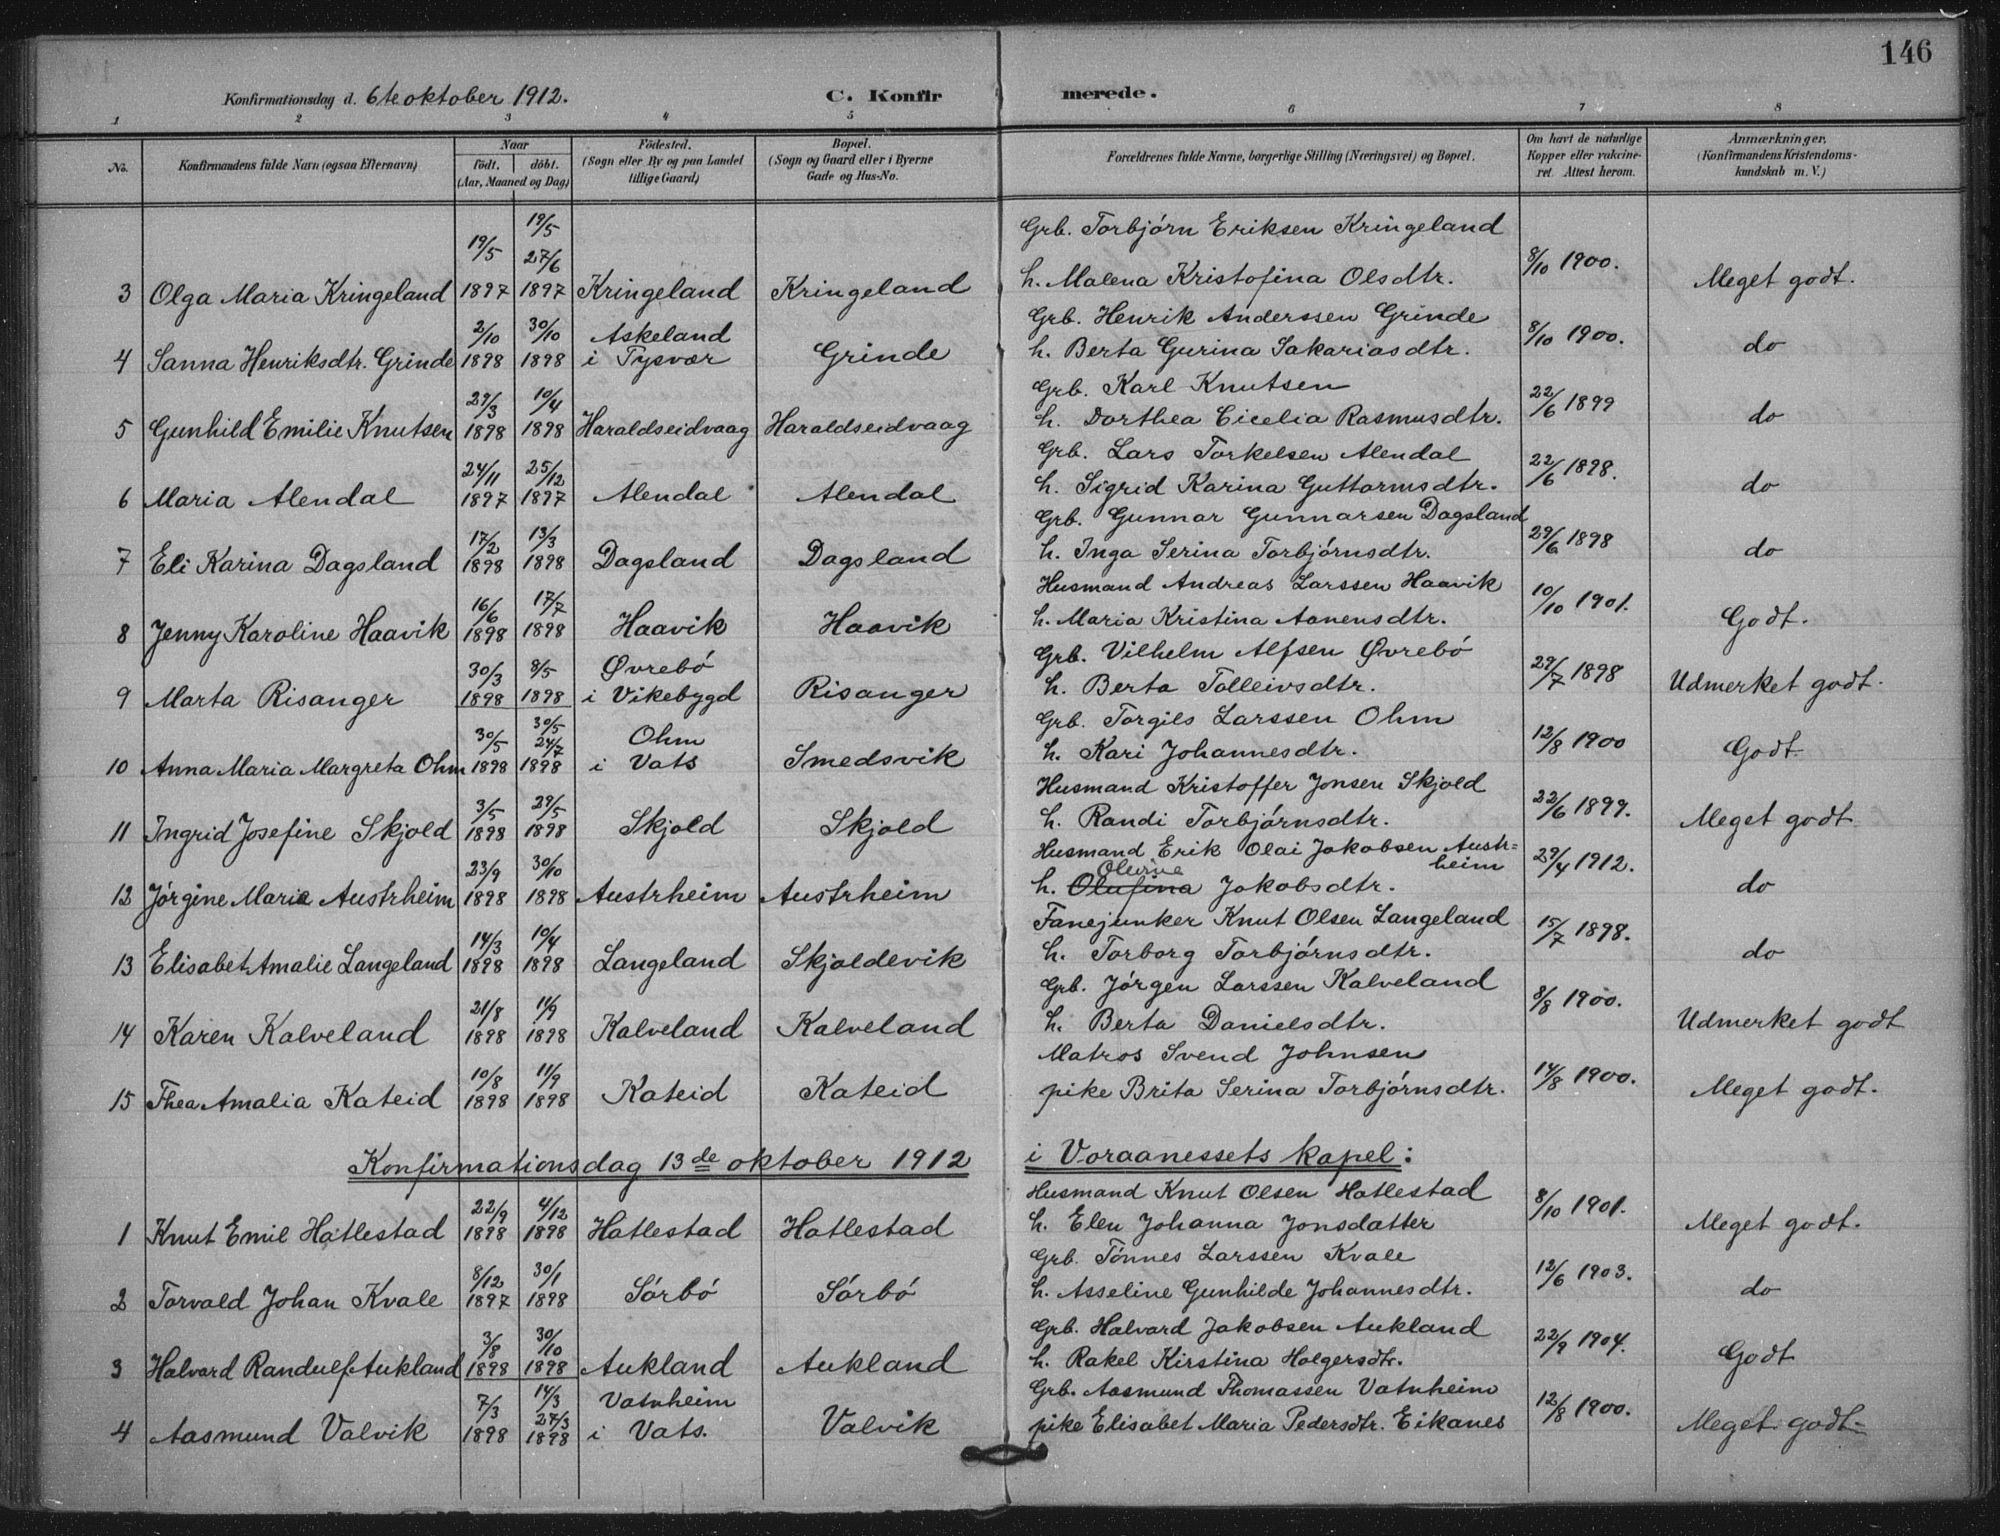 146
Konfirmationsdag d. 6te oktober 1912. C. Konfir merede.
1 2 3 4 5 6 7 8
No. Konfirmandens fulde Navn (ogsaa Efternavn) Naar født. døbt. (Aar, Maaned og Dag) Fødested. (Sogn eller By og paa Landet tillige Gaard) Bopæl. (Sogn og Gaard eller i Byerne Gade og Hus-No. Forældrenes fulde Navne, borgerlige Stilling (Næringsvei) og Bopæl. Om havt de naturlige Kopper eller vakcineret. Attest herom. Anmærkninger, (Konfirmandens Kristendomskundskab m. V.)
19/5 19/5 27/6 Grb. Torbjörn Eriksen Kringeland
3 Olga Maria Kringeland 1897 1897 Kringeland Kringeland h. Malena Kristofina Olsdtr. 8/10 1900. Meget godt.
2/10 30/10 Askeland Grb. Henrik Anderssen Grinde
4 Sanna Henriksdtr. Grinde 1898 1898 i Tysvær Grinde h. Berta Gurina Sakariasdtr. 8/10 1900. do
29/3 10/4 Grb. Karl Knutsen
5 Gunhild Emilie Knutsen 1898 1898 Haraldseidvaag Haraldseidvaag h. Dorthea Cicelia Rasmusdtr. 22/6 1899 do
24/11 25/12 Grb. Lars Torkelsen Alendal
6 Maria Alendal 1897 1897 Alendal Alendal h. Sigrid Karina Guttormsdtr. 22/6 1898. do
17/2 13/3 Grb. Gunnar Gunnarsen Dagsland
7 Eli Karina Dagsland 1898 1898 Dagsland Dagsland h. Inga Serina Torbjörnsdtr. 29/6 1898 do
16/6 17/7 Husmand Andreas Larssen Haavik
8 Jenny Karoline Haavik 1898 1898 Haavik Haavik h. Maria Kristina Aanensdtr. 10/10 1901. Godt.
30/3 8/5 Øvrebö Grb. Vilhelm Alfsen Øvrebö
9 Marta Risanger 1898 1898 i Vikebygd Risanger h. Berta Tolleivsdtr. 29/7 1898 Udmerket godt.
30/5 30/5 24/7 Ohm Grb. Torgils Larssen Ohm
10 Anna Maria Margreta Ohm 1898 1898 i Vats Smedsvik h. Kari Johannesdtr. 12/8 1900 Godt
3/5 29/5 Husmand Kristoffer Jonsen Skjold
11 Ingrid Josefine Skjold 1898 1898 Skjold Skjold h. Randi Torbjörnsdtr. 22/6 1899. Meget godt
23/9 30/10 Husmand Erik Olai Jakobsen Austr=heim
12 Jörgine Marie Austrheim 1898 1898 Austrheim Austrheim h. Olufina Olevine Jakobsdtr. 29/4 1912. do
14/3 10/4 Fanejunker Knut Olsen Langeland
13 Elisabet Amalie Langeland 1898 1898 Langeland Skjoldevik h. Torborg Torbjörnsdtr. 15/7 1898. do
21/8 11/9 Grb. Jörgen Larssen Kalveland
14 Karen Kalveland 1898 1898 Kalveland Kalveland h. Berta Danielsdtr. 8/8 1900. Udmerket godt
10/8 11/9 Matros Svend Johnsen
15 Thea Amalia Kateid 1898 1898 Kateid Kateid pike Brita Serina Torbjörnsdtr. 14/8 1900. Meget godt.
Konfirmationsdag 13de oktober 1912 i Voraanessets kapel:
22/9 4/12 Husmand Knut Olsen Hatlestad
1 Knut Emil Hatlestad 1898 1898 Hatlestad Hatlestad h. Elen Johanna Jonsdatter 8/10 1901. Meget godt.
8/12 30/1 Grb. Tönnes Larssen Kvale
2 Torvald Johan Kvale 1897 1898 Sörbö Sörbö h. Asseline Gunhilde Johannesdtr. 12/6 1903. do
3/8 30/10 Grb. Halvard Jakobsen Aukland
3 Halvard Randulf Aukland 1898 1898 Aukland Aukland h. Rakel Kirstina Holgersdtr. 22/9 1904. Godt
7/3 14/3 27/3 Vatnheim Grb. Aasmund Thomassen Vatnheim
4 Aasmund Valvik 1898 1898 i Vats. Valvik pike Elisabet Maria Pedersdtr. Eikanes 12/8 1900. Meget godt